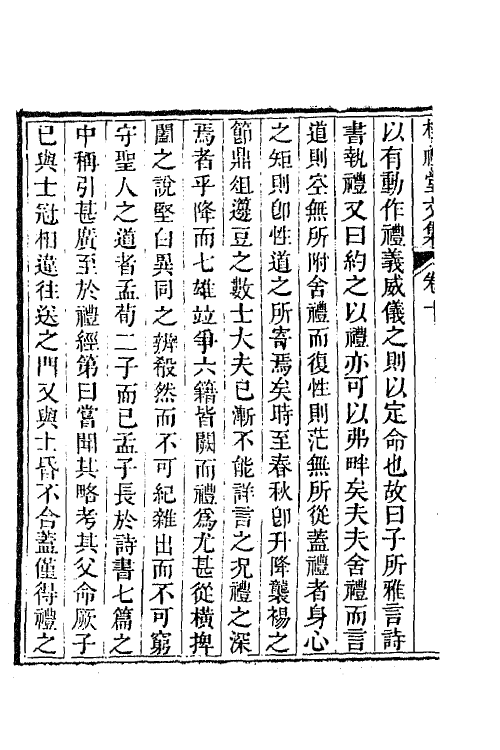 校禮堂文集 卷十
以有動作禮義威儀之則以定命也故曰子所雅言詩
書執禮又曰約之以禮亦可以弗畔矣夫夫舍禮而言
道則空無所附舍禮而復性則茫無所從蓋禮者身心
之矩則卽性道之所寄焉矣時至春秋卽升降襲裼之
節鼎俎籩豆之數士大夫已漸不能詳言之况禮之深
焉者乎降而七雄竝爭六籍皆闕而禮爲尤甚從橫捭
闔之說堅白異同之辨殺然而不可紀雜出而不可窮
守聖人之道者孟荀二子而已孟子長於詩書七篇之
中稱引甚廣至於禮經第曰嘗聞其略考其父命厥子
已與士冠相違往送之門又與士昏不合蓋僅得禮之